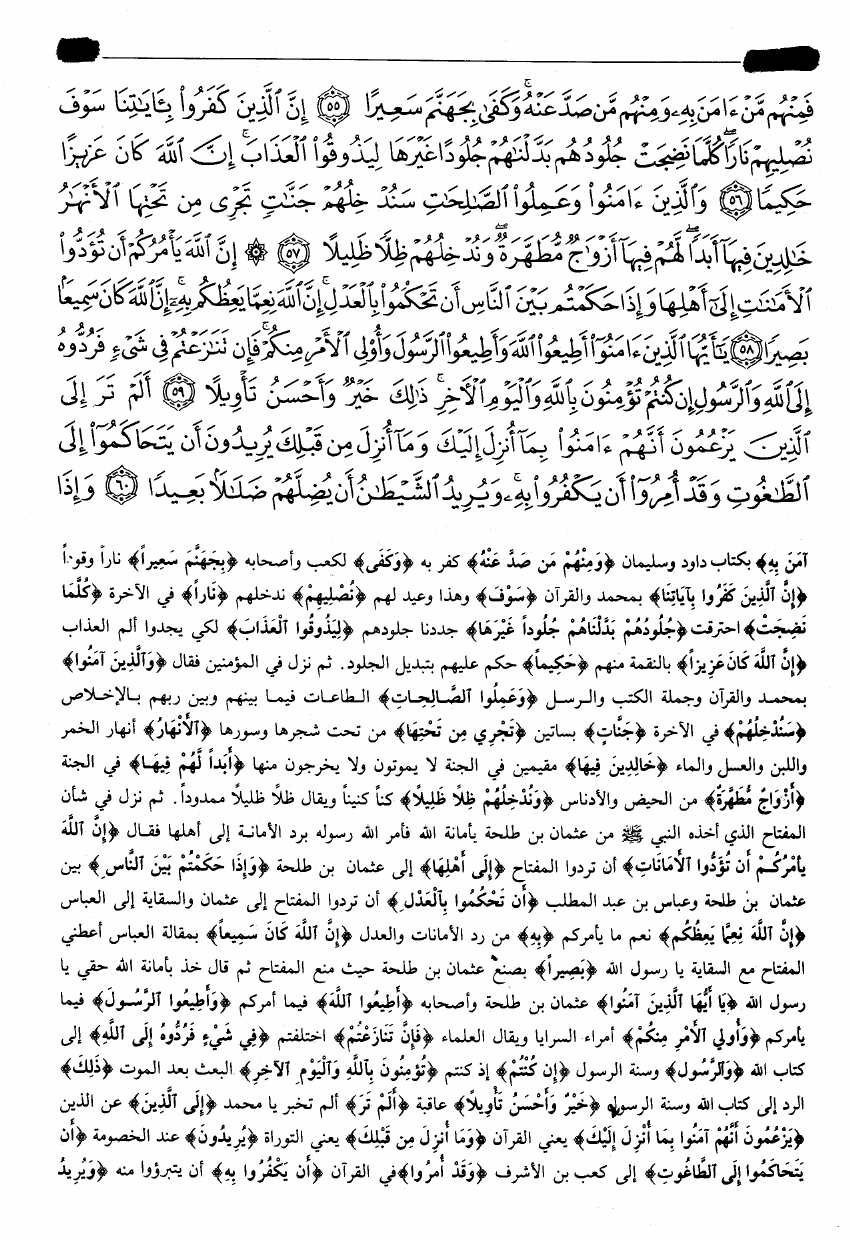 فَمِنْهُم مَّنْ ءَامَنَ بِهِۦ وَمِنْهُم مَّن صَدَّ عَنْهُ ۚ وَكَفَىٰ بِجَهَنَّمَ سَعِيرًا ۝٥٥ إِنَّ ٱلَّذِينَ كَفَرُوا۟ بِـَٔايَٰتِنَا سَوْفَ
نُصْلِيهِمْ نَارًۭا كُلَّمَا نَضِجَتْ جُلُودُهُم بَدَّلْنَٰهُمْ جُلُودًا غَيْرَهَا لِيَذُوقُوا۟ ٱلْعَذَابَ ۗ إِنَّ ٱللَّهَ كَانَ عَزِيزًا
حَكِيمًا ۝٥٦ وَٱلَّذِينَ ءَامَنُوا۟ وَعَمِلُوا۟ ٱلصَّٰلِحَٰتِ سَنُدْخِلُهُمْ جَنَّٰتٍ تَجْرِى مِن تَحْتِهَا ٱلْأَنْهَٰرُ
خَٰلِدِينَ فِيهَآ أَبَدًۭا ۖ لَّهُمْ فِيهَآ أَزْوَٰجٌۭ مُّطَهَّرَةٌۭ ۖ وَنُدْخِلُهُمْ ظِلًّۭا ظَلِيلًا ۝٥٧ ۞ إِنَّ ٱللَّهَ يَأْمُرُكُمْ أَن تُؤَدُّوا۟
ٱلْأَمَٰنَٰتِ إِلَىٰٓ أَهْلِهَا وَإِذَا حَكَمْتُم بَيْنَ ٱلنَّاسِ أَن تَحْكُمُوا۟ بِٱلْعَدْلِ ۚ إِنَّ ٱللَّهَ نِعِمَّا يَعِظُكُم بِهِۦٓ ۗ إِنَّ ٱللَّهَ كَانَ سَمِيعًۢا
بَصِيرًا ۝٥٨ يَٰٓأَيُّهَا ٱلَّذِينَ ءَامَنُوٓا۟ أَطِيعُوا۟ ٱللَّهَ وَأَطِيعُوا۟ ٱلرَّسُولَ وَأُو۟لِى ٱلْأَمْرِ مِنكُمْ ۖ فَإِن تَنَٰزَعْتُمْ فِى شَىْءٍۢ فَرُدُّوهُ
إِلَى ٱللَّهِ وَٱلرَّسُولِ إِن كُنتُمْ تُؤْمِنُونَ بِٱللَّهِ وَٱلْيَوْمِ ٱلْءَاخِرِ ۚ ذَٰلِكَ خَيْرٌۭ وَأَحْسَنُ تَأْوِيلًا ۝٥٩ أَلَمْ تَرَ إِلَى
ٱلَّذِينَ يَزْعُمُونَ أَنَّهُمْ ءَامَنُوا۟ بِمَآ أُنزِلَ إِلَيْكَ وَمَآ أُنزِلَ مِن قَبْلِكَ يُرِيدُونَ أَن يَتَحَاكَمُوٓا۟ إِلَى
ٱلطَّٰغُوتِ وَقَدْ أُمِرُوٓا۟ أَن يَكْفُرُوا۟ بِهِۦ ۖ وَيُرِيدُ ٱلشَّيْطَٰنُ أَن يُضِلَّهُمْ ضَلَٰلًۢا بَعِيدًا ۝٦٠ وَإِذَا
آمَنَ بِهِ﴾ بكتاب داود وسليمان ﴿وَمِنْهُمْ مَن صَدَّ عَنْهُ﴾ كفر به ﴿وَكَفَى﴾ لكعب وأصحابه ﴿بِجَهَنَّمَ سَعِيراً﴾ ناراً وقوداً
﴿إِنَّ ٱلَّذِينَ كَفَرُوا بِآيَاتِنَا﴾ بمحمد والقرآن ﴿سَوْفَ﴾ وهذا وعيد لهم ﴿نُصْلِيهِمْ﴾ ندخلهم ﴿نَاراً﴾ في الآخرة ﴿كُلَّمَا
نَضِجَتْ﴾ احترقت ﴿جُلُودُهُمْ بَدَّلْنَاهُمْ جُلُوداً غَيْرَهَا﴾ جددنا جلودهم ﴿لِيَذُوقُوا ٱلْعَذَابَ﴾ لكي يجدوا ألم العذاب
﴿إِنَّ ٱللَّهَ كَانَ عَزِيزاً﴾ بالنقمة منهم ﴿حَكِيماً﴾ حكم عليهم بتبديل الجلود. ثم نزل في المؤمنين فقال ﴿وَٱلَّذِينَ آمَنُوا﴾
بمحمد والقرآن وجملة الكتب والرسل ﴿وَعَمِلُوا ٱلصَّالِحاتِ﴾ الطاعات فيما بينهم وبين ربهم بالإخلاص
﴿سَنُدْخِلُهُمْ﴾ في الآخرة ﴿جَنَّاتٍ﴾ بساتين ﴿تَجْرِي مِن تَحْتِهَا﴾ من تحت شجرها وسورها ﴿ٱلأَنْهَارُ﴾ أنهار الخمر
واللبن والعسل والماء ﴿خَالِدِينَ فِيهَا﴾ مقيمين في الجنة لا يموتون ولا يخرجون منها ﴿أَبَداً لَّهُمْ فِيهَا﴾ في الجنة
﴿أَزْوَاجٌ مُّطَهَّرَةٌ﴾ من الحيض والأدناس ﴿وَنُدْخِلُهُمْ ظِلًّا ظَلِيلًا﴾ كناً كنيناً ويقال ظلاً ظليلاً ممدوداً. ثم نزل في شأن
المفتاح الذي أخذه النبي ﷺ من عثمان بن طلحة بأمانة الله فأمر الله رسوله برد الأمانة إلى أهلها فقال ﴿إِنَّ ٱللَّهَ
يأْمُرُكُمْ أَن تُؤَدُّوا ٱلأَمَانَاتِ﴾ أن تردوا المفتاح ﴿إِلَى أَهْلِهَا﴾ إلى عثمان بن طلحة ﴿وَإِذَا حَكَمْتُمْ بَيْنَ ٱلنَّاسِ﴾ بين
عثمان بن طلحة وعباس بن عبد المطلب ﴿أَن تَحْكُمُوا بِٱلْعَدْلِ﴾ أن تردوا المفتاح إلى عثمان والسقاية إلى العباس
﴿إِنَّ ٱللَّهَ نِعِمَّا يَعِظُكُم﴾ نعم ما يأمركم ﴿بِهِ﴾ من رد الأمانات والعدل ﴿إِنَّ ٱللَّهَ كَانَ سَمِيعاً﴾ بمقالة العباس أعطني
المفتاح مع السقاية يا رسول الله ﴿بَصِيراً﴾ بصنع عثمان بن طلحة حيث منع المفتاح ثم قال خذ بأمانة الله حقي يا
رسول الله ﴿يَا أَيُّهَا ٱلَّذِينَ آمَنُوا﴾ عثمان بن طلحة وأصحابه ﴿أَطِيعُوا ٱللَّهَ﴾ فيما أمركم ﴿وَأَطِيعُوا ٱلرَّسُولَ﴾ فيما
يأمركم ﴿وَأُولِي ٱلأَمْرِ مِنكُمْ﴾ أمراء السرايا ويقال العلماء ﴿فَإِنْ تَنَازَعْتُمْ﴾ اختلفتم ﴿فِي شَيْءٍ فَرُدُّوهُ إِلَى ٱللَّهِ﴾ إلى
كتاب الله ﴿وَٱلرَّسُولِ﴾ وسنة الرسول ﴿إِن كُنْتُمْ﴾ إذ كنتم ﴿تُؤْمِنُونَ بِٱللَّهِ وَٱلْيَوْمِ ٱلآخِرِ﴾ البعث بعد الموت ﴿ذَلِكَ﴾
الرد إلى كتاب الله وسنة الرسول ﴿خَيْرٌ وَأَحْسَنُ تَأْوِيلاً﴾ عاقبة ﴿أَلَمْ تَرَ﴾ ألم تخبر يا محمد ﴿إِلَى ٱلَّذِينَ﴾ عن الذين
﴿يَزْعُمُونَ أَنَّهُمْ آمَنُوا بِمَا أُنْزِلَ إِلَيْكَ﴾ يعني القرآن ﴿وَمَا أُنزِلَ مِن قَبْلِكَ﴾ يعني التوراة ﴿يُرِيدُونَ﴾ عند الخصومة ﴿أَن
يَتَحَاكَمُوا إِلَى ٱلطَّاغُوتِ﴾ إلى كعب بن الأشرف ﴿وَقَدْ أُمرُوا﴾ في القرآن ﴿أَن يَكْفُرُوا بِهِ﴾ أن يتبرؤوا منه ﴿وَيُرِيدُ